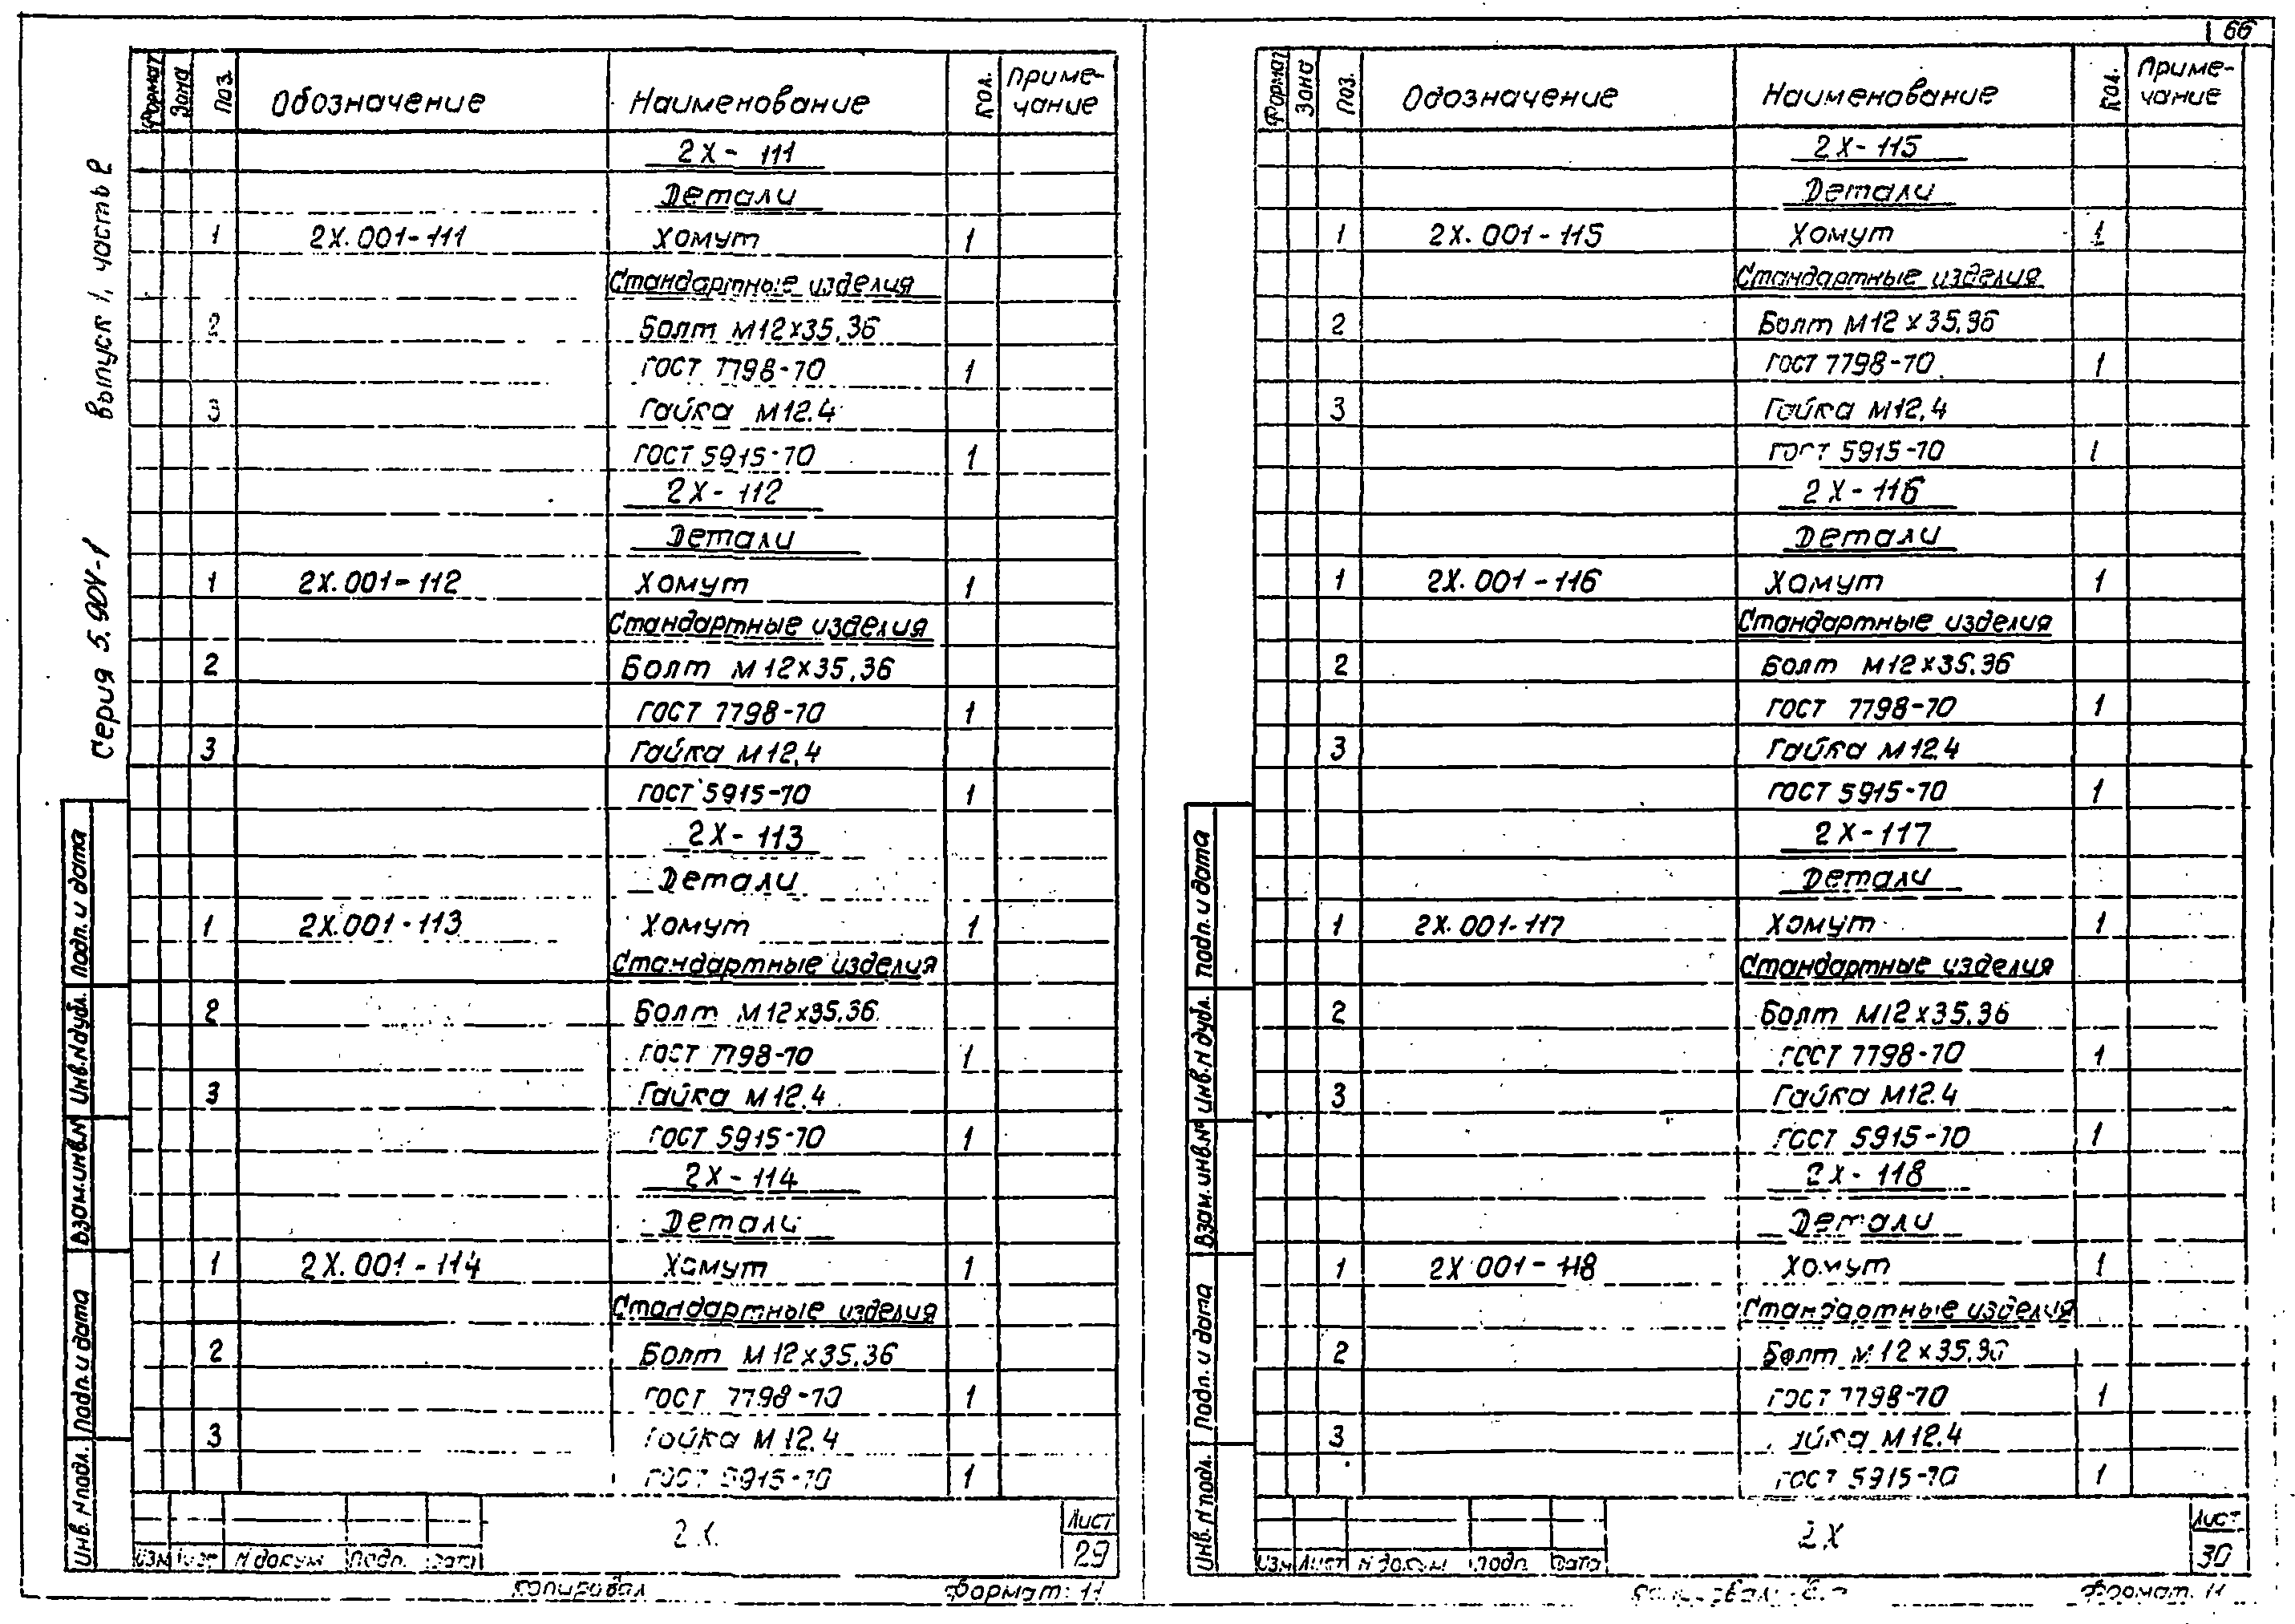 66
Серия 5.904-1 выпуск 1, часть 2
Формат Зона Поз. Обозначение Наименование Кол. Приме-
чание
2Х- 111
Детали
1 2Х.001-111 Хомут 1
Стандартные изделия
2 Болт М12х35.36
ГОСТ 7798-70 1
3 Гайка М12.4
ГОСТ 5915-70 1
2Х- 112
Детали
1 2Х.001-112 Хомут 1
Стандартные изделия
2 Болт М12х35.36
ГОСТ 7798-70 1
3 Гайка М12.4
ГОСТ 5915-70 1
2Х- 113
Детали
1 2Х.001-113 Хомут 1
Стандартные изделия
2 Болт М12х35.36
ГОСТ 7798-70 1
3 Гайка М12.4
ГОСТ 5915-70 1
2Х- 114
Детали
1 2Х.001-114 Хомут 1
Стандартные изделия
2 Болт М12х35.36
ГОСТ 7798-70 1
3 Гайка М12.4
ГОСТ 5915-70 1
Подп. и дата
Инв.N дубл.
Взам.инв.N
Подп. и дата
Инв. N подл.
Изм Лист N докум Подп. Дата
2Х
Лист
29
Копировал Формат: 11
Формат Зона Поз. Обозначение Наименование Кол. Приме-
чание
2Х-115
Детали
1 2Х.001-115 Хомут 1
Стандартные изделия
2 Болт М12х35.36
ГОСТ 7798-70 1
3 Гайка М12.4
ГОСТ 5915-70 1
2Х-116
Детали
1 2Х.001-116 Хомут 1
Стандартные изделия
2 Болт М12х35.36
ГОСТ 7798-70 1
3 Гайка М12.4
ГОСТ 5915-70 1
2Х-117
Детали
1 2Х.001-117 Хомут 1
Стандартные изделия
2 Болт М12х35.36
ГОСТ 7798-70 1
3 Гайка М12.4
ГОСТ 5915-70 1
2Х-118
Детали
1 2Х.001-118 Хомут 1
Стандартные изделия
2 Болт М12х35.36
ГОСТ 7798-70 1
3 Гайка М12.4
ГОСТ 5915-70 1
Подп. и дата
Инв. N дубл.
Взам. инв.N°
Подп. и дата
Инв. N подл.
Изм Лист N докум Подп Дата
2Х
Лист
30
Формат. 11